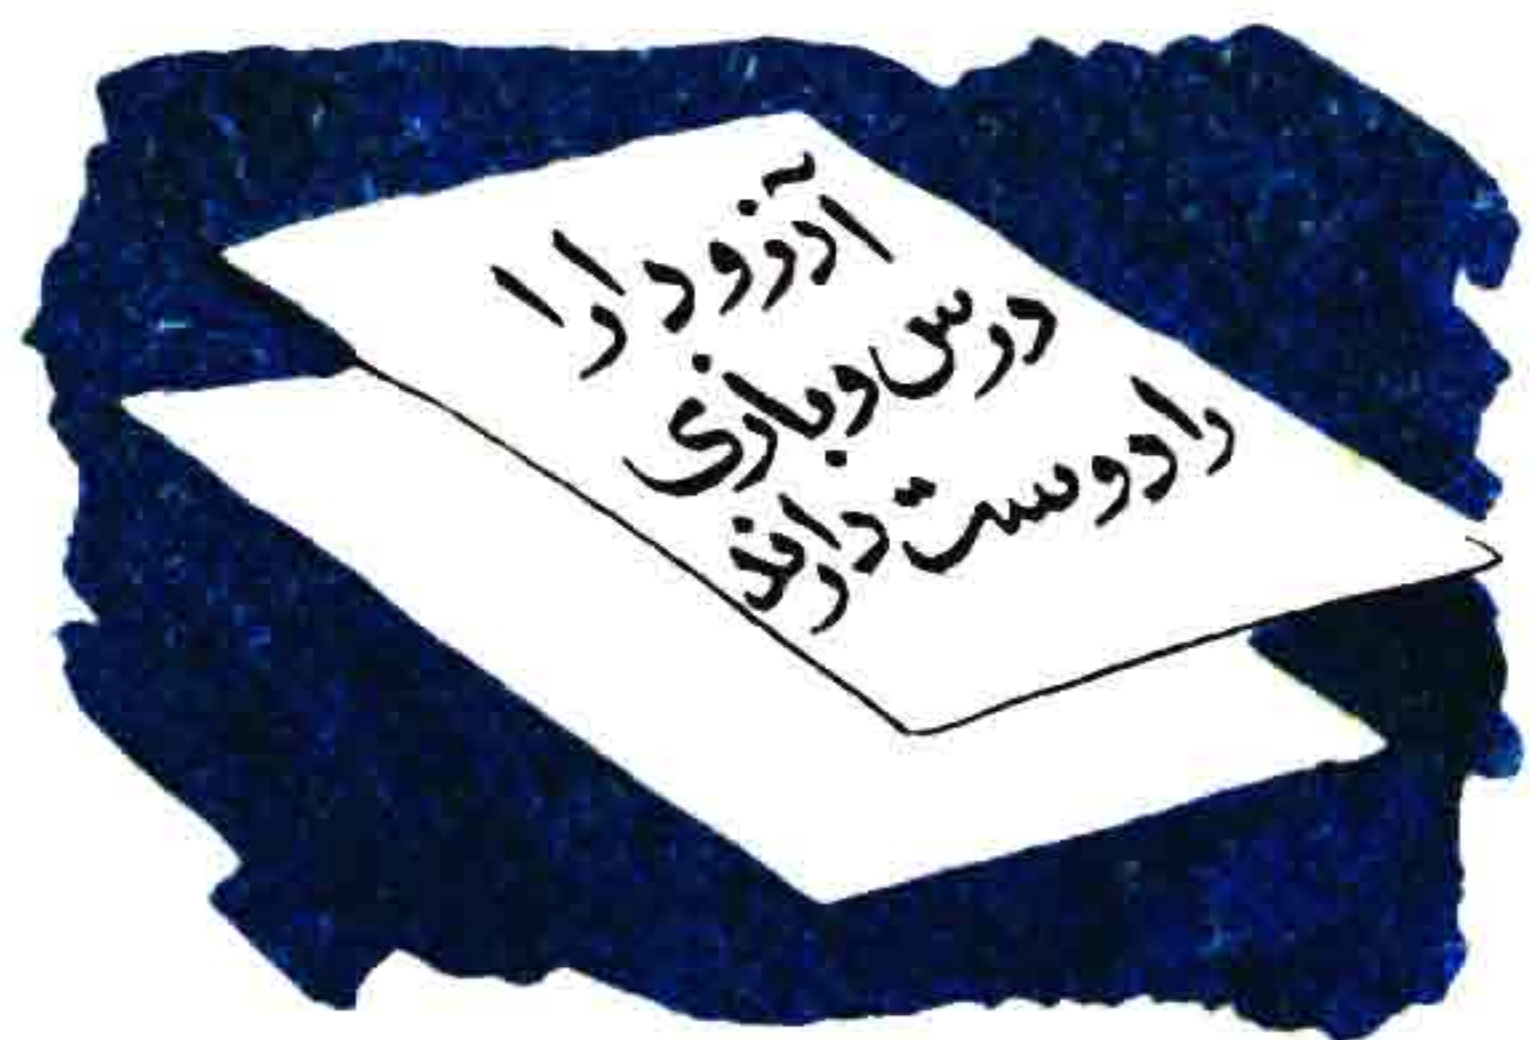 آرزو دارا
درس و بازی
را دوست دارند